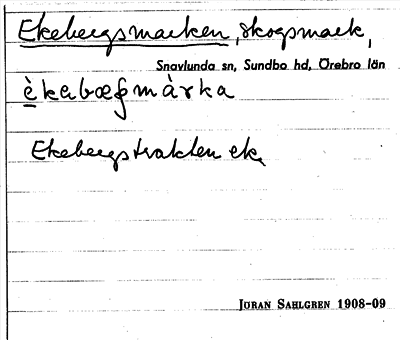 Ekebergsmarken, skogsmark,
Snavlunda sn, Sundbo hd, Örebro län
èkabæʂmàrka
Ekebergstrakten ek.
JÖRAN SAHLGREN 1908-09